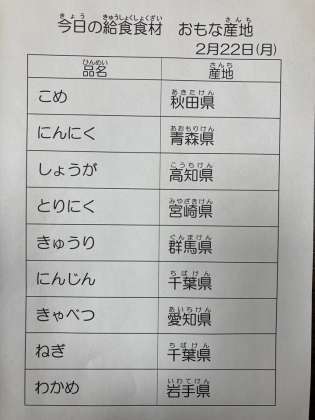 今日の給食食材 おもな産地
2月22日(月)
品名 産地
こめ 秋田県
にんにく 青森県
しょうが 高知県
とりにく 宮崎県
きゅうり 群馬県
にんじん 千葉県
きゃべつ 愛知県
ねぎ 千葉県
わかめ 岩手県